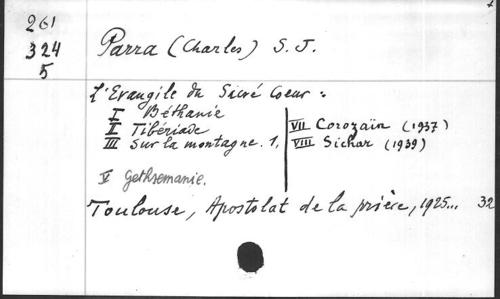 261
324
5
Parra (Charles) S. J.
L'Evangile du Sacré Coeur :
I Béthanie
II Tibériade
III Sur la montagne. 1.
V Gethsemanie.
VII Corozaïn (1937)
VIII Sichar (1939)
Toulouse, Apostolat de la prière, 1925... 32